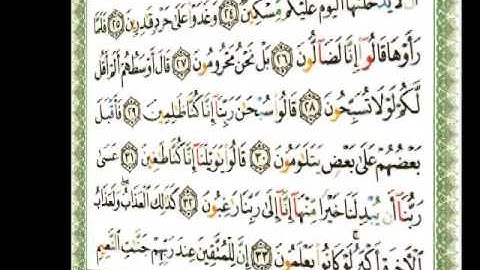 أَن لَّا يَدْخُلَنَّهَا ٱلْيَوْمَ عَلَيْكُم مِّسْكِينٌ ٢٤ وَغَدَوْا۟ عَلَىٰ حَرْدٍ قَٰدِرِينَ ٢٥ فَلَمَّا
رَأَوْهَا قَالُوٓا۟ إِنَّا لَضَآلُّونَ ٢٦ بَلْ نَحْنُ مَحْرُومُونَ ٢٧ قَالَ أَوْسَطُهُمْ أَلَمْ أَقُل
لَّكُمْ لَوْلَا تُسَبِّحُونَ ٢٨ قَالُوا۟ سُبْحَٰنَ رَبِّنَآ إِنَّا كُنَّا ظَٰلِمِينَ ٢٩ فَأَقْبَلَ
بَعْضُهُمْ عَلَىٰ بَعْضٍ يَتَلَٰوَمُونَ ٣٠ قَالُوا۟ يَٰوَيْلَنَآ إِنَّا كُنَّا طَٰغِينَ ٣١ عَسَىٰ
رَبُّنَآ أَن يُبْدِلَنَا خَيْرًا مِّنْهَآ إِنَّآ إِلَىٰ رَبِّنَا رَٰغِبُونَ ٣٢ كَذَٰلِكَ ٱلْعَذَابُ ۖ وَلَعَذَابُ
ٱلْءَاخِرَةِ أَكْبَرُ ۚ لَوْ كَانُوا۟ يَعْلَمُونَ ٣٣ إِنَّ لِلْمُتَّقِينَ عِندَ رَبِّهِمْ جَنَّٰتِ ٱلنَّعِيمِ